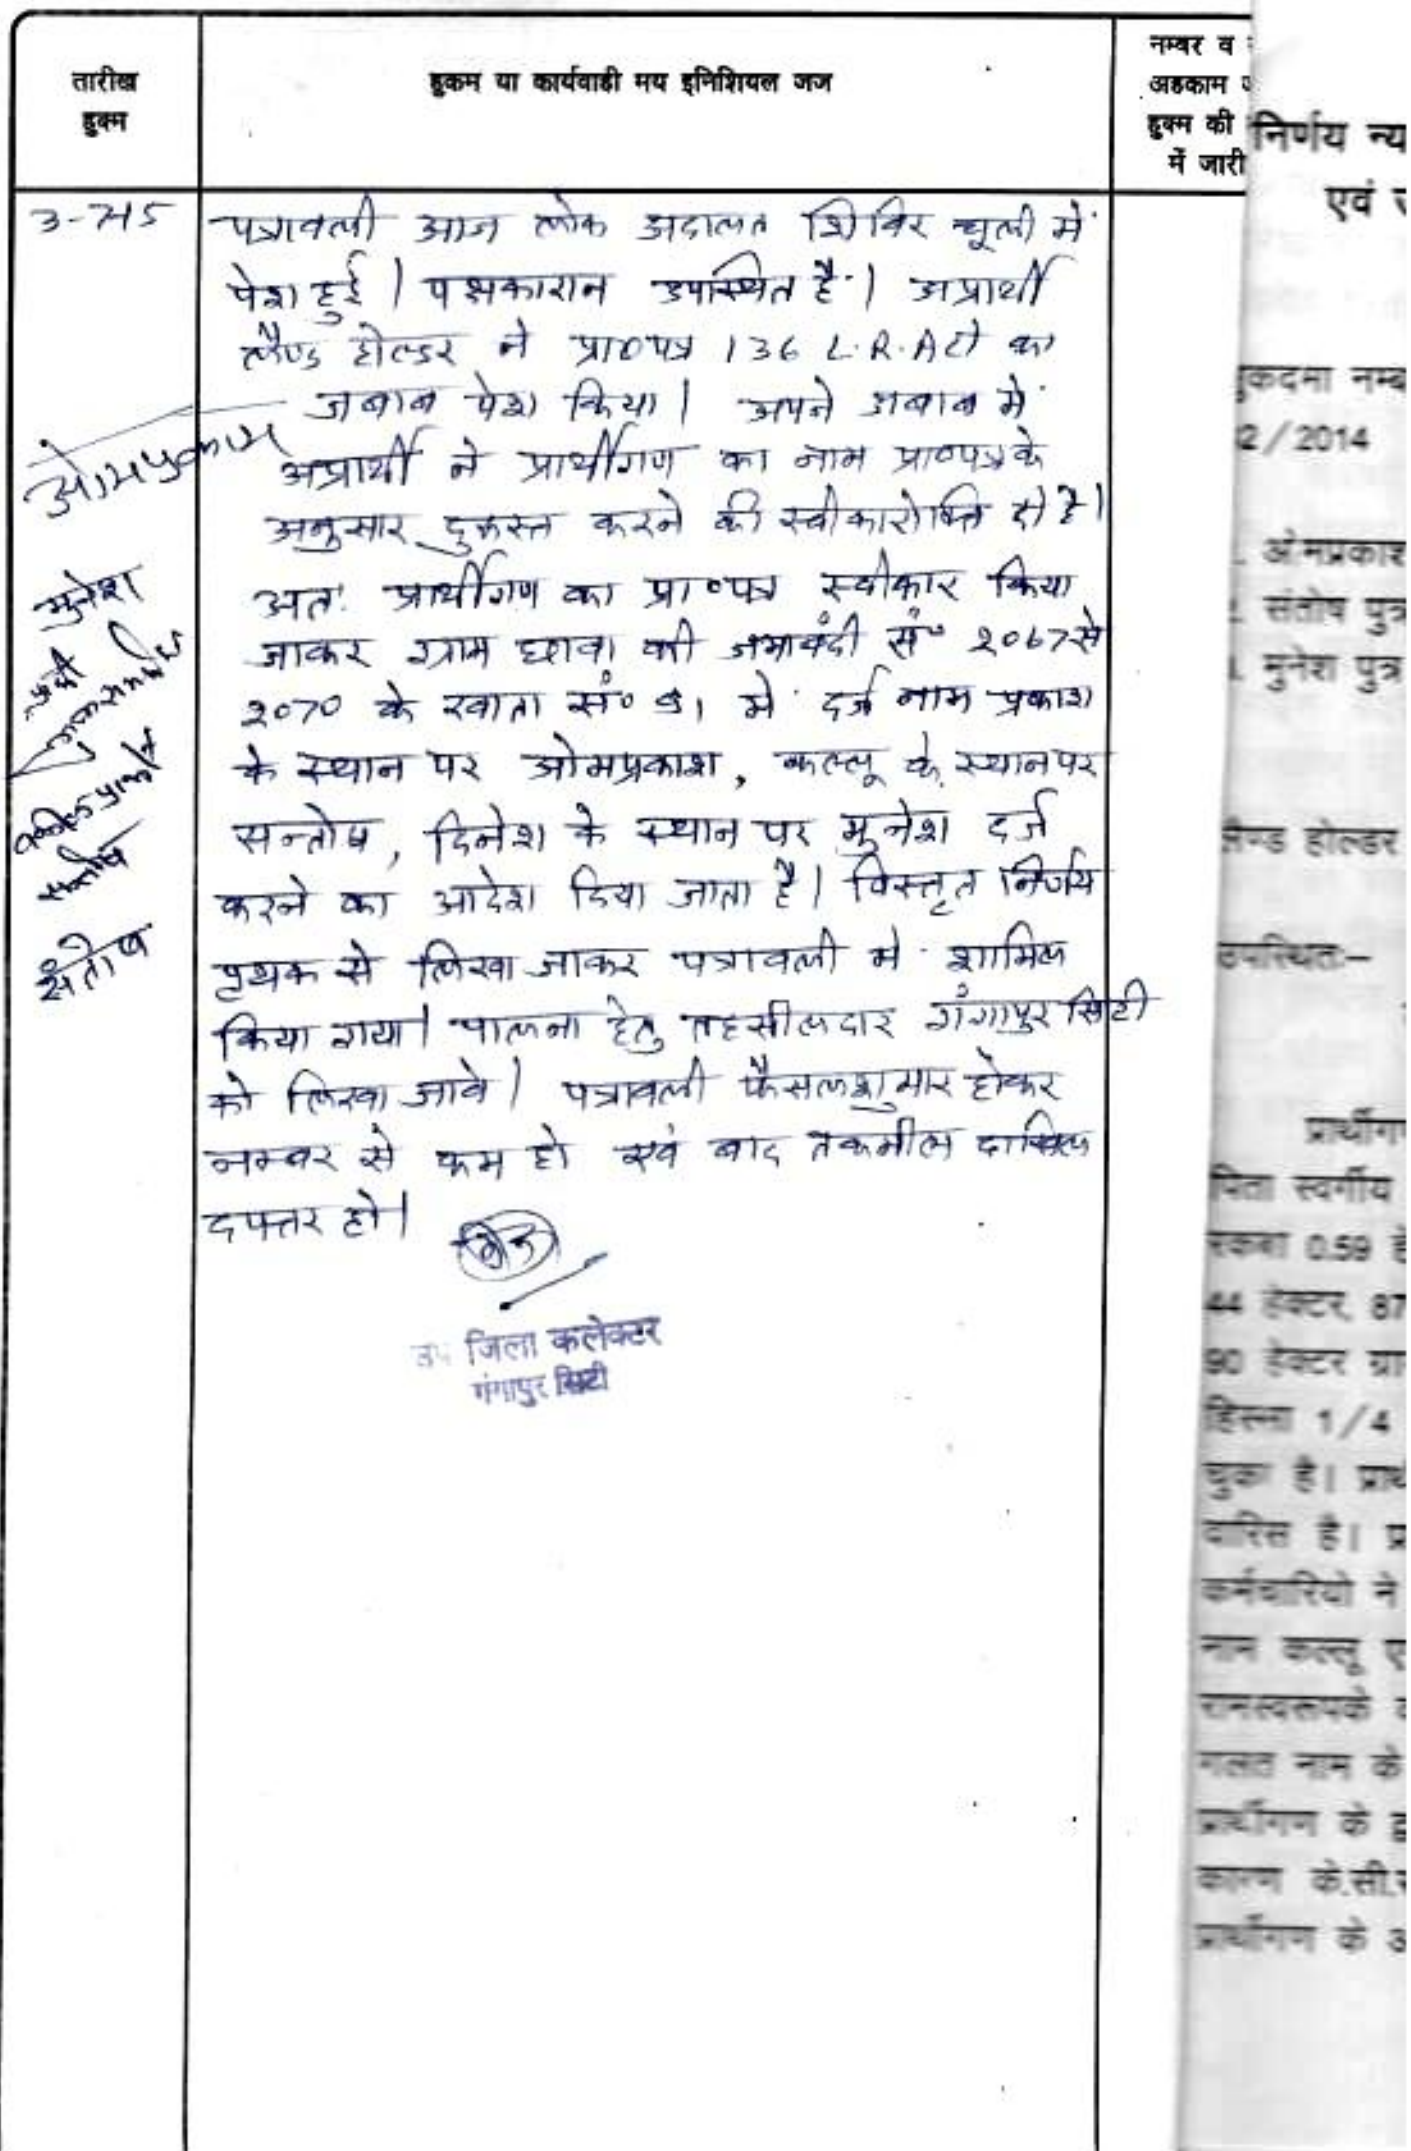 तारीख
हुक्म
हुकम या कार्यवाही मय इनिशियल जज
नम्बर व
अहकाम
हुक्म की
में जारी
3-7-15
पत्रावली आज लोक अदालत शिविर चूली में
पेश हुई। पक्षकारान उपस्थित है। अप्रार्थी
लैण्ड होल्डर ने प्रा०पत्र 136 L.R.Act का
जबाब पेश किया। अपने जबाब में
अप्रार्थी ने प्रार्थीगण का नाम प्रा०पत्र के
अनुसार दुरूस्त करने की स्वीकारोक्ति दी है।
अतः प्रार्थीगण का प्रा०पत्र स्वीकार किया
जाकर ग्राम छावा की जमाबंदी सं० 2067 से
2070 के खाता सं० 91 में दर्ज नाम प्रकाश
के स्थान पर ओमप्रकाश, कल्लू के स्थान पर
सन्तोष, दिनेश के स्थान पर मुनेश दर्ज
करने का आदेश दिया जाता है। विस्तृत निर्णय
पृथक से लिखा जाकर पत्रावली में शामिल
किया गया। पालना हेतु तहसीलदार गंगापुर सिटी
को लिखा जावे। पत्रावली फैसलशुमार होकर
नम्बर से कम हो एवं बाद तकमील दाखिल
दफ्तर हो।
ओमप्रकाश
मुनेश
संतोष
उप जिला कलेक्टर
गंगापुर सिटी
निर्णय न्य
एवं
मुकदमा नम्ब
2/2014
ओमप्रकाश
संतोष पुत्र
मुनेश पुत्र
लैण्ड होल्डर
उपस्थितः–
प्रार्थीगण
पिता स्वर्गीय
रकबा 0.59 है
44 हेक्टर, 87
90 हेक्टर ग्रा
हिस्सा 1/4
चुका है। प्रार्थ
वारिस है। प्र
कर्मचारियो ने
नाम कल्लू ए
रामस्वरूपके
गलत नाम के
प्रार्थीगण के द्व
कारण के.सी.
प्रार्थीगण के अ